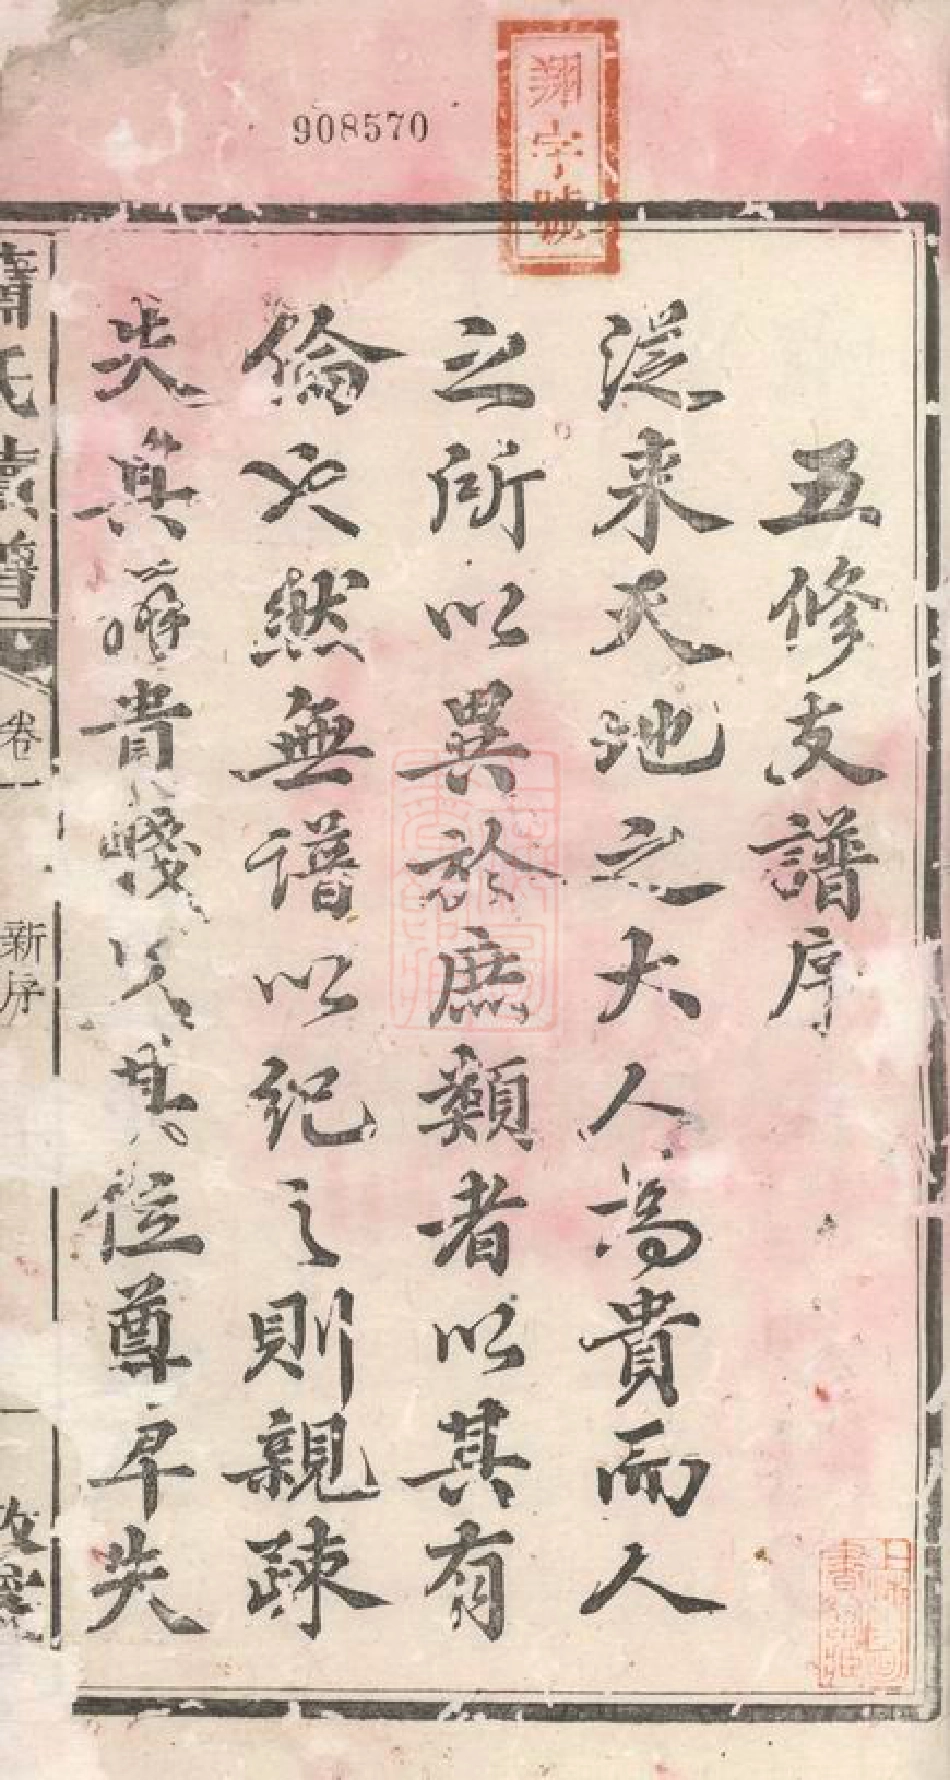 908570
翔字號
五修支譜序
從来天地之大人為貴而人
之所以異於庶類者以其有
倫也然無譜以紀之則親疎
失其序貴賤失其位尊卑失
蕭氏續譜
卷一
新序
一